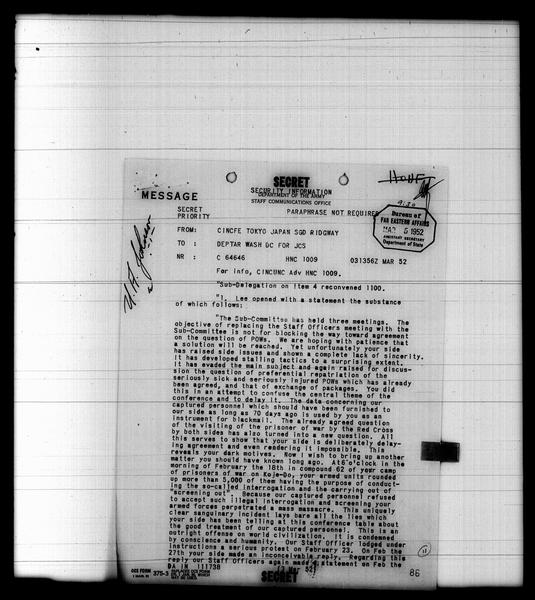 SECRET
SECURITY INFORMATION
DEPARTMENT OF THE ARMY
STAFF COMMUNICATIONS OFFICE
MESSAGE
SECRET
PRIORITY
PARAPHRASE NOT REQUIRED
9:30
Bureau of
FAR EASTERN AFFAIRS
MAR 5 1952
ASSISTANT SECRETARY
Department of State
U. A. Johnson
FROM: CINCFE TOKYO JAPAN SGD RIDGWAY
TO : DEPTAR WASH DC FOR JCS
NR : C 64646 HNC 1009 031356Z MAR 52
For info, CINCUNC Adv HNC 1009.
"Sub-Delegation on Item 4 reconvened 1100.
"1. Lee opened with a statement the substance
of which follows:
"The Sub-Committee has held three meetings. The
objective of replacing the Staff Officers meeting with the
Sub-Committee is not for blocking the way toward agreement
on the question of POWs. We are hoping with patience that
a solution will be reached. Yet unfortunately your side
has raised side issues and shown a complete lack of sincerity.
It has developed stalling tactics to a surprising extent.
It has evaded the main subject and again raised for discus-
sion the question of preferential repatriation of the
seriously sick and seriously injured POWs which has already
been agreed, and that of exchange of packages. You did
this in an attempt to confuse the central theme of the
conference and to delay it. The date concerning our
captured personnel which should have been furnished to
our side as long as 70 days ago is used by you as an
instrument for blackmail. The already agreed question
of the visiting of the prisoner of war by the Red Cross
by both sides has also turned into a new question. All
this serves to show that your side is deliberately delay-
ing agreement and even rendering it impossible. This
reveals your dark motives. Now I wish to bring up another
matter you should have known long ago. At 6 o'clock in the
morning of February the 18th in compound 62 of your camp
of prisoners of war on Koje-Do, your armed units rounded
up more than 5,000 of them having the purpose of conduct-
ing the so-called interrogation and the carrying out of
"screening out". Because our captured personnel refused
to accept such illegal interrogation and screening your
armed forces perpetrated a mass massacre. This uniquely
clear sanguinary incident lays bare all the lies which
your side has been telling at this conference table about
the good treatment of our captured personnel. This is an
outright offense on world civilization. It is condemned
by conscience and humanity. Our Staff Officer lodged under
instructions a serious protest on February 23. On Feb the
27th your side made an inconceivable reply. Regarding this
reply our Staff Officers again made a statement on Feb the
DA IN 111738 (3 Mar 52)
OCS FORM 375-3
SECRET
11
86